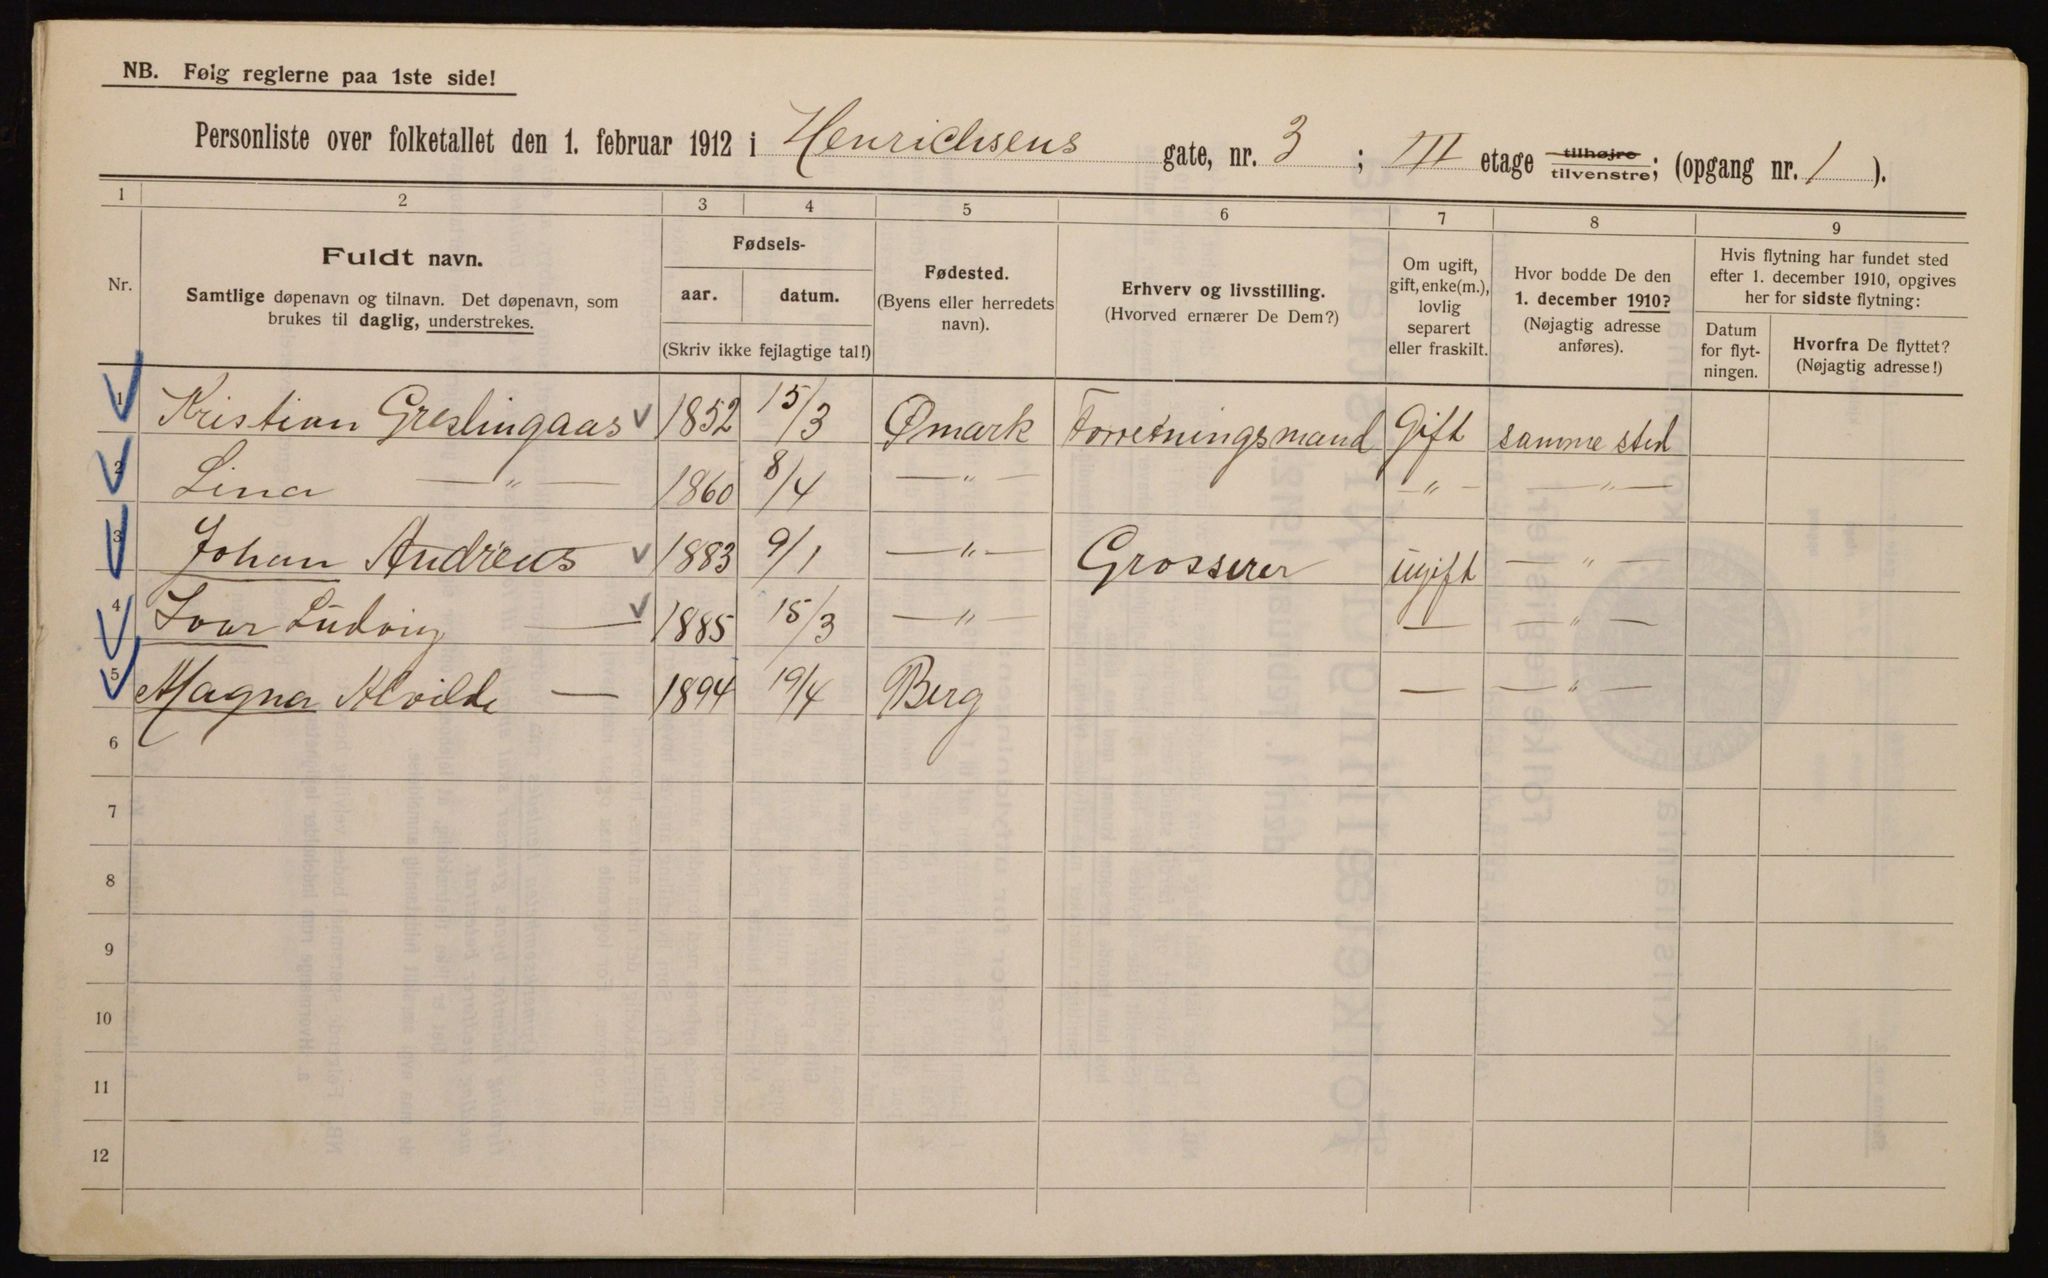 NB. Følg reglerne paa 1ste side!
Personliste over folketallet den 1. februar 1912 i Henrichsens gate, nr. 3 ; III etage tilhøjre tilvenstre; (opgang nr. 1 ).
1 2 3 4 5 6 7 8 9
Nr.
Fuldt navn.
Samtlige døpenavn og tilnavn. Det døpenavn, som
brukes til daglig, understrekes.
Fødsels-
aar. datum.
(Skriv ikke fejlagtige tal!)
Fødested.
(Byens eller herredets
navn).
Erhverv og livsstilling.
(Hvorved ernærer De Dem?)
Om ugift,
gift, enke(m.),
lovlig
separert
eller fraskilt.
Hvor bodde De den
1. december 1910?
(Nøjagtig adresse
anføres).
Hvis flytning har fundet sted
efter 1. december 1910, opgives
her for sidste flytning:
Datum
for flyt-
ningen.
Hvorfra De flyttet?
(Nøjagtig adresse!)
1 Kristian Greslingaas 1852 15/3 Ømark Forretningsmand Gift samme sted
2 Lina — „ — 1860 8/4 — „ — — „ — — „ —
3 Johan Andreas — 1883 9/1 — „ — Grosserer ugift — „ —
4 Ivar Ludvig — 1885 15/3 — „ — — — „ —
5 Magna Alvilde — 1894 19/4 Berg — — „ —
6
7
8
9
10
11
12